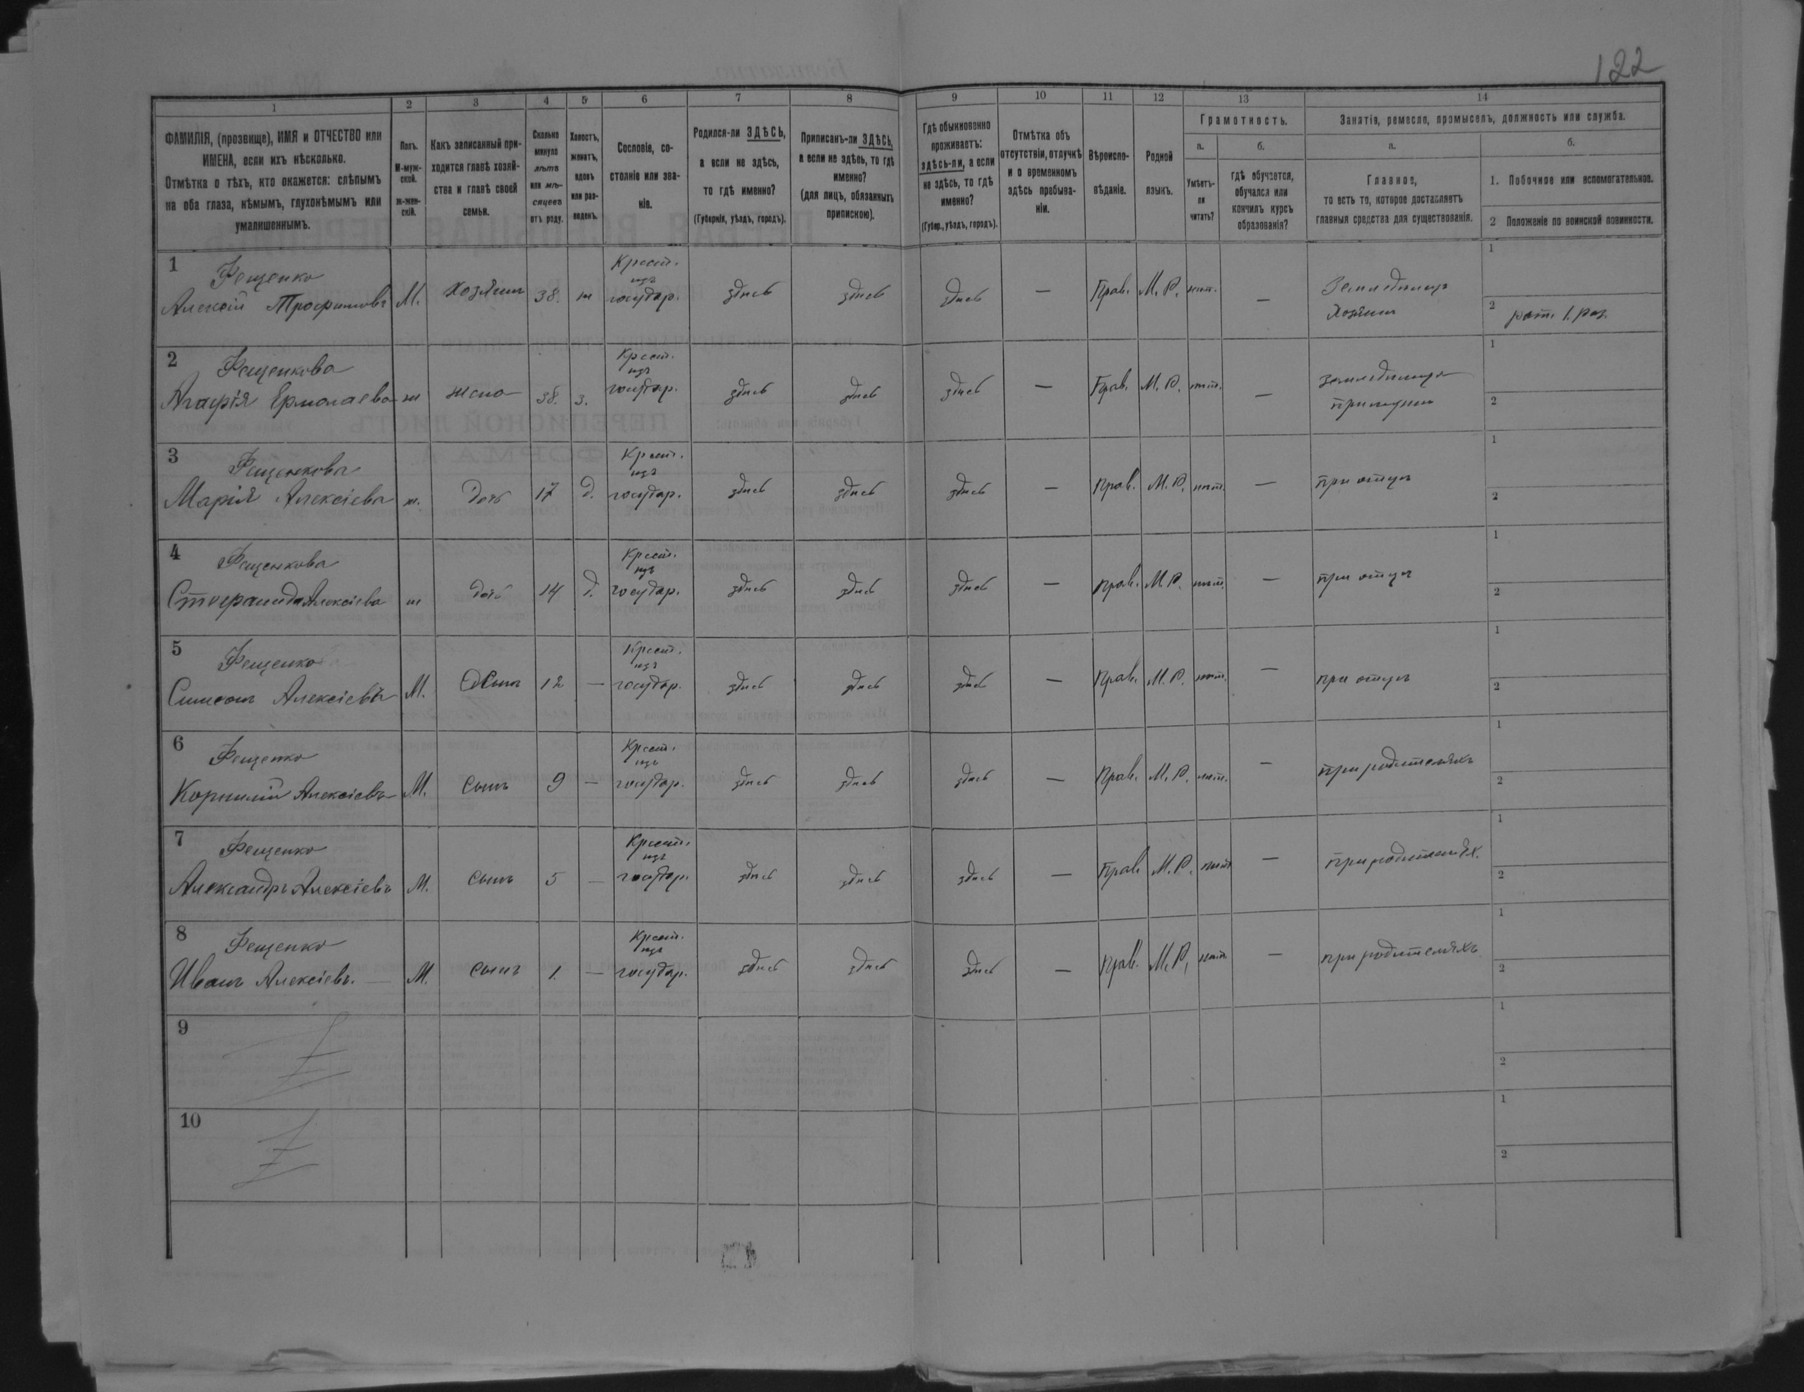 122
1 2 3 4 5 6 7 8 9 10 11 12 13 14
ФАМИЛІЯ, (прозвище), ИМЯ и ОТЧЕСТВО или
ИМЕНА, если ихъ нѣсколько.
Отмѣтка о тѣхъ, кто окажется: слѣпымъ
на оба глаза, нѣмымъ, глухонѣмымъ или
умалишеннымъ.
Полъ.
М-муж-
ской.
Ж-жен-
скій.
Какъ записанный при-
ходится главѣ хозяй-
ства и главѣ своей
семьи.
Сколько
минуло
лѣтъ
или мѣ-
сяцевъ
отъ роду.
Холостъ,
женатъ,
вдовъ
или раз-
веденъ.
Сословіе, со-
стояніе или зва-
ніе.
Родился-ли ЗДѢСЬ,
а если не здѣсь,
то гдѣ именно?
(Губернія, уѣздъ, городъ).
Приписанъ-ли ЗДѢСЬ,
а если не здѣсь, то гдѣ
именно?
(для лицъ, обязанныхъ
припискою).
Гдѣ обыкновенно
проживаетъ:
здѣсь-ли, а если
не здѣсь, то гдѣ
именно?
(Губер., уѣздъ, городъ).
Отмѣтка объ
отсутствіи, отлучкѣ
и о временномъ
здѣсь пребыва-
ніи.
Вѣроиспо-
вѣданіе.
Родной
языкъ.
Грамотность.
а.
Умѣетъ-
ли
читать?
б.
гдѣ обучается,
обучался или
кончилъ курсъ
образованія?
Занятія, ремесло, промыселъ, должность или служба.
а.
Главное,
то есть то, которое доставляетъ
главныя средства для существованія.
б.
1. Побочное или вспомогательное.
2 Положеніе по воинской повинности.
1 Фещенко
Алексѣй Трофимовъ М. хозяинъ 38. ж Крест. изъ государ. здѣсь здѣсь здѣсь — Прав. М. Р. нѣт. — Земледѣлецъ хозяинъ
1
2 рат. 1. раз.
2 Фещенкова
Агафія Ермолаева ж жена 38. з. Крест. изъ государ. здѣсь здѣсь здѣсь — Прав. М. Р. нѣт. — земледѣлецъ при мужѣ
1
2
3 Фещенкова
Марія Алексѣева ж. дочь 17 д. Крест. изъ государ. здѣсь здѣсь здѣсь — Прав. М. Р. нѣт. — при отцѣ
1
2
4 Фещенкова
Алексѣева ж дочь 14 д. Крест. изъ государ. здѣсь здѣсь здѣсь — Прав. М. Р. нѣт. — при отцѣ
1
2
5 Фещенко
Симеонъ Алексѣевъ М. Сынъ 12 — Крест. изъ государ. здѣсь здѣсь здѣсь — Прав. М. Р. нѣт. — при отцѣ
1
2
6 Фещенко
Корнилій Алексѣевъ М. сынъ 9 — Крест. изъ государ. здѣсь здѣсь здѣсь — Прав. М. Р. нѣт. — при родителяхъ
1
2
7 Фещенко
Александръ Алексѣевъ М. сынъ 5 — Крест. изъ государ. здѣсь здѣсь здѣсь — Прав. М. Р. нѣт — при родителях.
1
2
8 Фещенко
Иванъ Алексѣевъ. М. сынъ 1. — Крест. изъ государ. здѣсь здѣсь здѣсь — Прав. М. Р. нѣт. — при родителяхъ
1
2
9
1
2
10
1
2